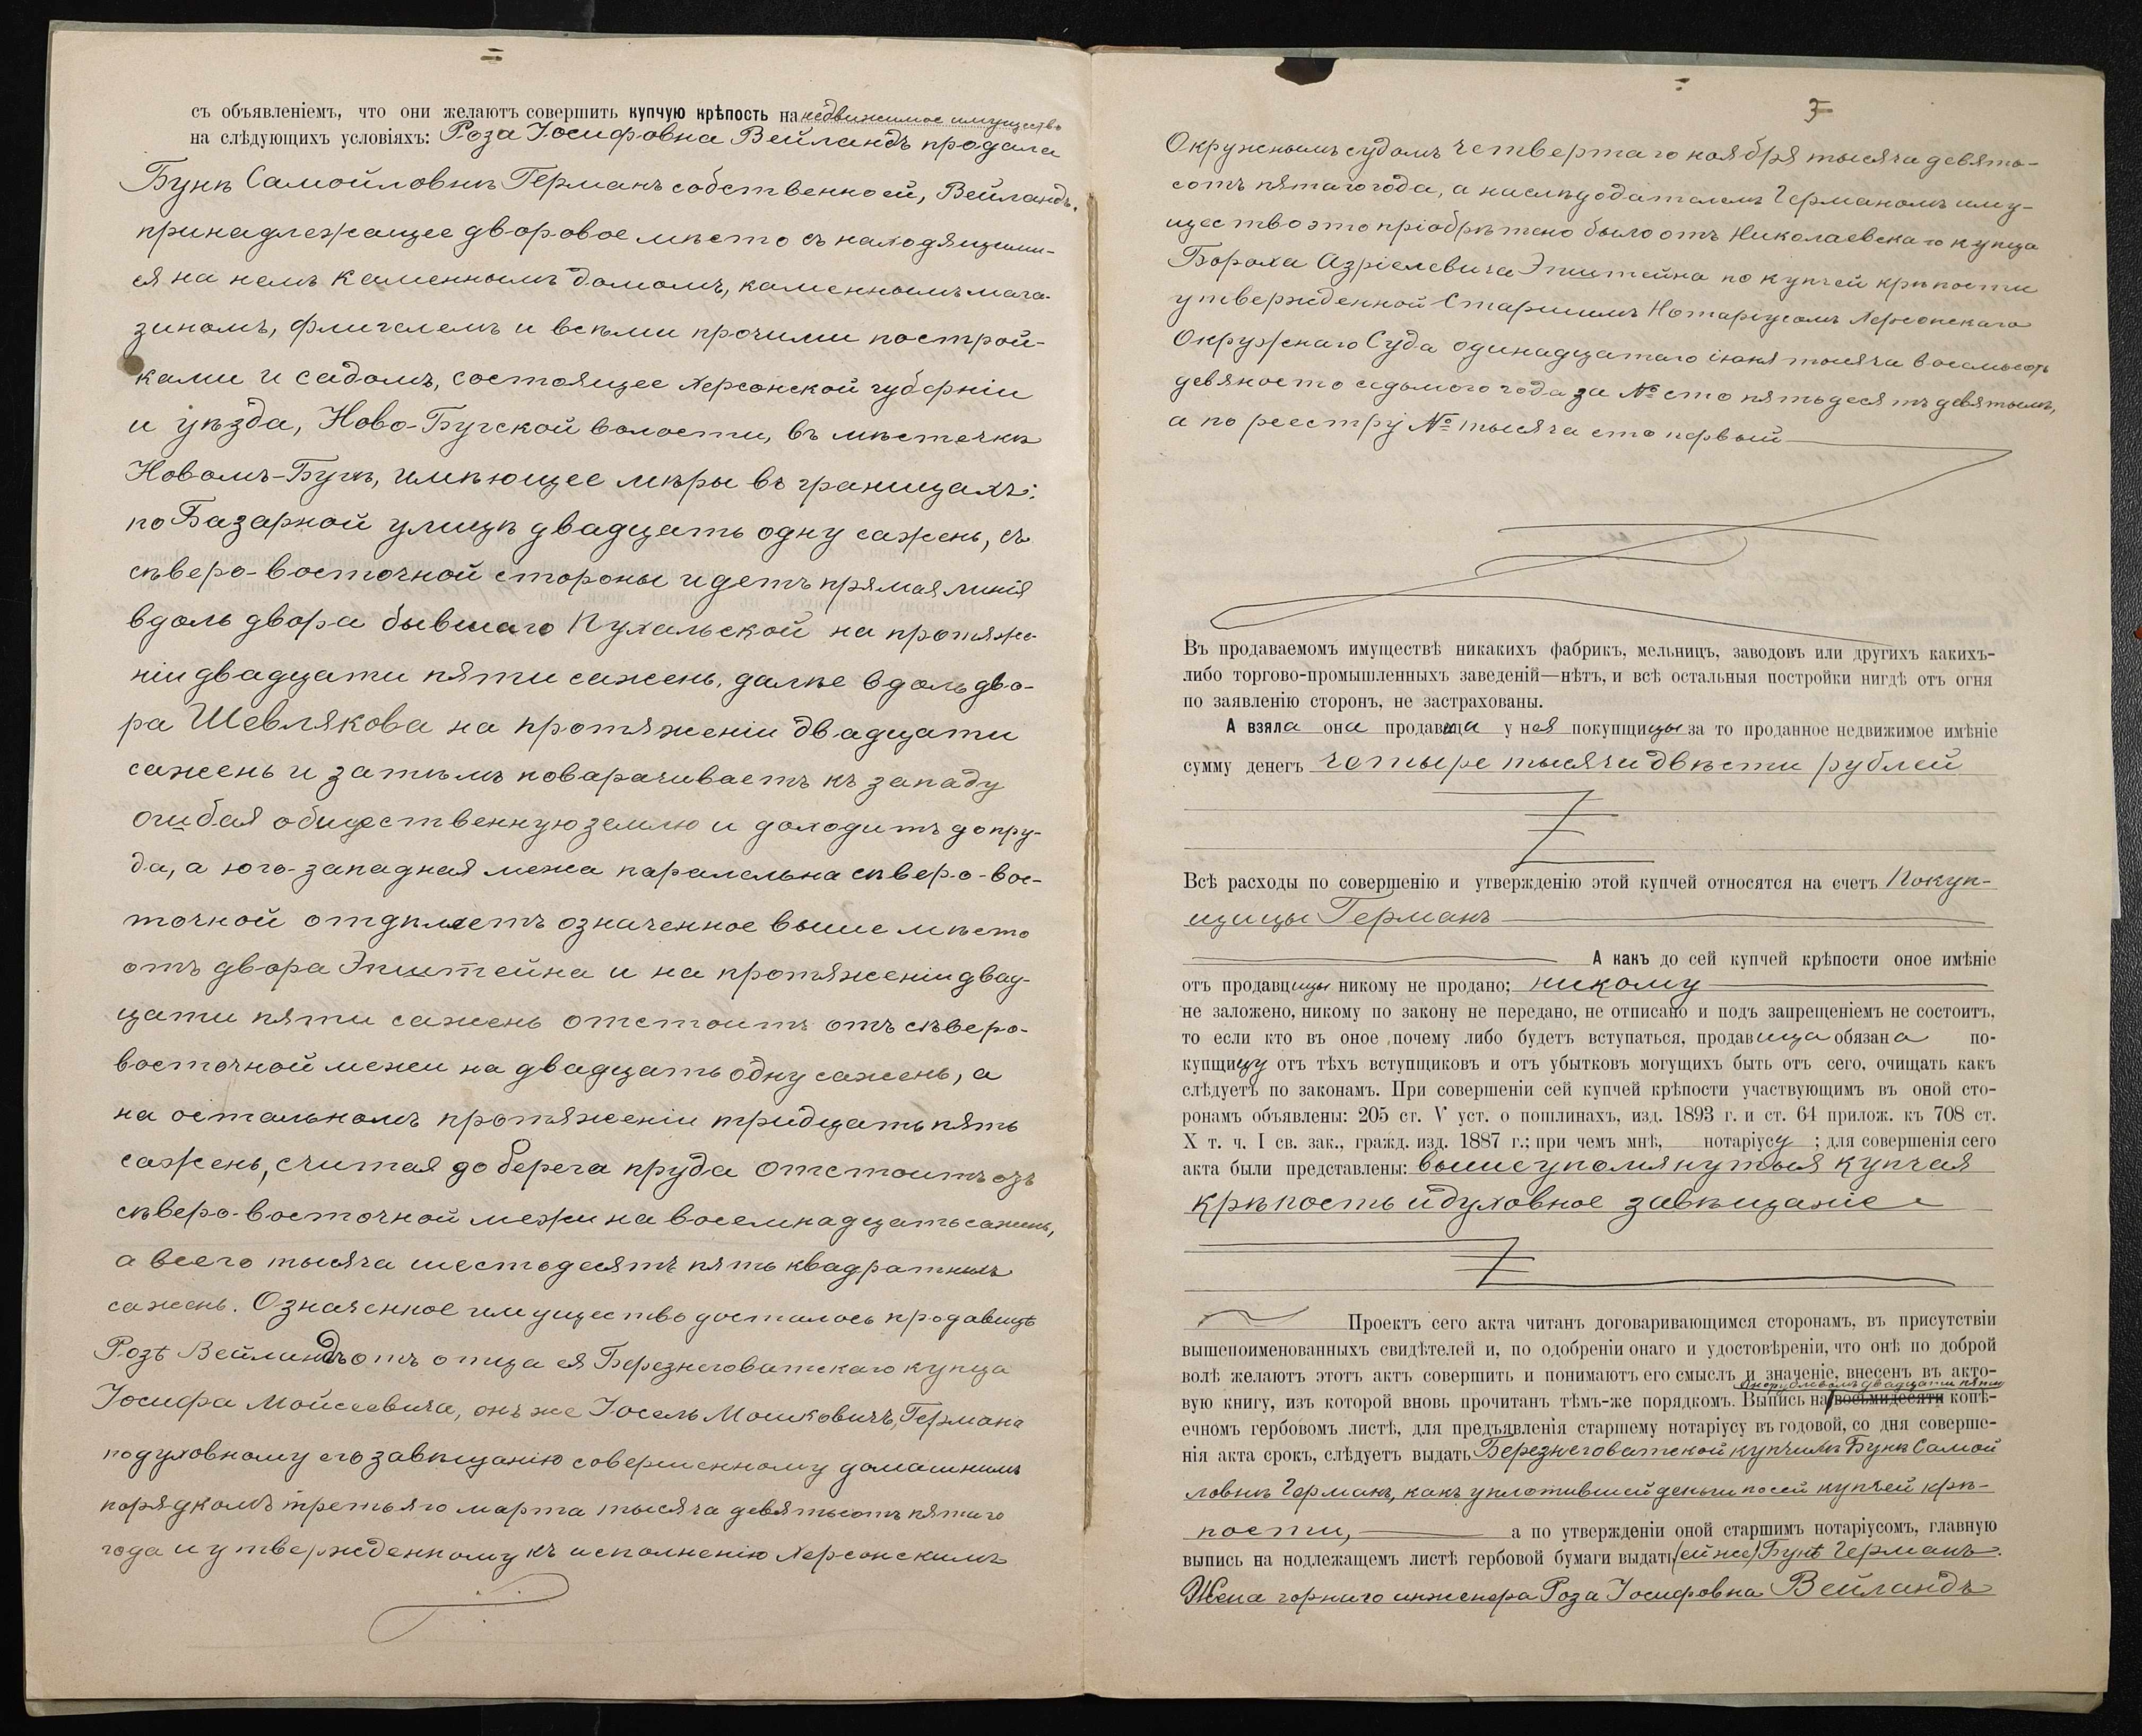 съ объявленіемъ, что они желаютъ совершить купчую крѣпость на недвижимое имущество
на слѣдующихъ условіяхъ: Роза Іосифовна Вейландъ продала
Бунѣ Самойловнѣ Германъ собственно ей, Вейландъ,
принадлежащее дворовое мѣсто съ находящими-
ся на немъ каменнымъ домомъ, каменнымъ мага-
зиномъ, флигелемъ и всѣми прочими построй-
ками и садомъ, состоящее Херсонской губерніи
и уѣзда, Ново-Бугской волости, въ мѣстечкѣ
Новомъ-Бугѣ, имѣющее мѣры въ границахъ:
по Базарной улицѣ двадцать одну сажень, съ
сѣверо-восточной стороны идетъ прямая линія
вдоль двора бывшаго Пухальской на протяже-
ніи двадцати пяти сажень, далѣе вдоль дво-
ра Шевлякова на протяженіи двадцати
сажень и затѣмъ поварачиваетъ къ западу
огибая общественную землю и доходитъ до пру-
да, а юго-западная межа паралельна сѣверо-вос-
точной отдѣляетъ означенное выше мѣсто
отъ двора Эпштейна и на протяженіи двад-
цати пяти сажень отстоитъ отъ сѣверо-
восточной межи на двадцать одну сажень, а
на остальномъ протяженіи тридцать пять
сажень, считая до берега пруда отстоитъ отъ
сѣверо-восточной межи на восемнадцать сажень,
а всего тысяча шестьдесятъ пять квадратныхъ
сажень. Означенное имущество досталось продавицѣ
Розѣ Вейландъ отъ отца ея Березнеговатскаго купца
Іосифа Мойсеевича, онъ же Іосель Мошковичъ, Германа
по духовному его завѣщанію совершенному домашнимъ
порядкомъ третьяго марта тысяча девятьсотъ пятаго
года и утвержденному къ исполненію Херсонскимъ
3
Окружнымъ судомъ четвертаго ноября тысяча девять-
сотъ пятаго года, а наслѣдодателемъ Германомъ иму-
щество это пріобрѣтено было отъ Николаевскаго купца
Бороха Азріелевича Эпштейна по купчей крѣпости
утвержденной Старшимъ Нотаріусомъ Херсонскаго
Окружнаго Суда одинадцатаго іюня тысяча восемьсотъ
девяносто седьмого года за № сто пятьдесятъ девятымъ,
а по реестру № тысяча сто первый
Въ продаваемомъ имуществѣ никакихъ фабрикъ, мельницъ, заводовъ или другихъ какихъ-
либо торгово-промышленныхъ заведеній—нѣтъ, и всѣ остальныя постройки нигдѣ отъ огня
по заявленію сторонъ, не застрахованы.
А взяла она продавица у нея покупщицы за то проданное недвижимое имѣніе
сумму денегъ четыре тысячи двѣсти рублей
Всѣ расходы по совершенію и утвержденію этой купчей относятся на счетъ Покуп-
щицы Германъ
А какъ до сей купчей крѣпости оное имѣніе
отъ продавщицы никому не продано; никому
не заложено, никому по закону не передано, не отписано и подъ запрещеніемъ не состоитъ,
то если кто въ оное почему либо будетъ вступаться, продавица обязана по-
купщицу отъ тѣхъ вступщиковъ и отъ убытковъ могущихъ быть отъ сего, очищать какъ
слѣдуетъ по законамъ. При совершеніи сей купчей крѣпости участвующимъ въ оной сто-
ронамъ объявлены: 205 ст. V уст. о пошлинахъ, изд. 1893 г. и ст. 64 прилож. къ 708 ст.
X т. ч. I св. зак., гражд. изд. 1887 г.; при чемъ мнѣ, нотаріусу ; для совершенія сего
акта были представлены: вышеупомянутыя купчая
крѣпость и духовное завѣщаніе
Проектъ сего акта читанъ договаривающимся сторонамъ, въ присутствіи
вышепоименованныхъ свидѣтелей и, по одобреніи онаго и удостовѣреніи, что онѣ по доброй
волѣ желаютъ этотъ актъ совершить и понимаютъ его смыслъ и значеніе, внесенъ въ акто-
однорублевомъ двадцати пяти
вую книгу, изъ которой вновь прочитанъ тѣмъ-же порядкомъ. Выпись на восьмидесяти копѣ-
ечномъ гербовомъ листѣ, для предъявленія старшему нотаріусу въ годовой, со дня соверше-
нія акта срокъ, слѣдуетъ выдать Березнеговатской купчихѣ Бунѣ Самой
ловнѣ Германъ, какъ уплотившей деньги по сей купчей крѣ-
пости, а по утвержденіи оной старшимъ нотаріусомъ, главную
выпись на нодлежащемъ листѣ гербовой бумаги выдать (ей же) Бунѣ Германъ.
Жена горнаго инженера Роза Іосифовна Вейландъ